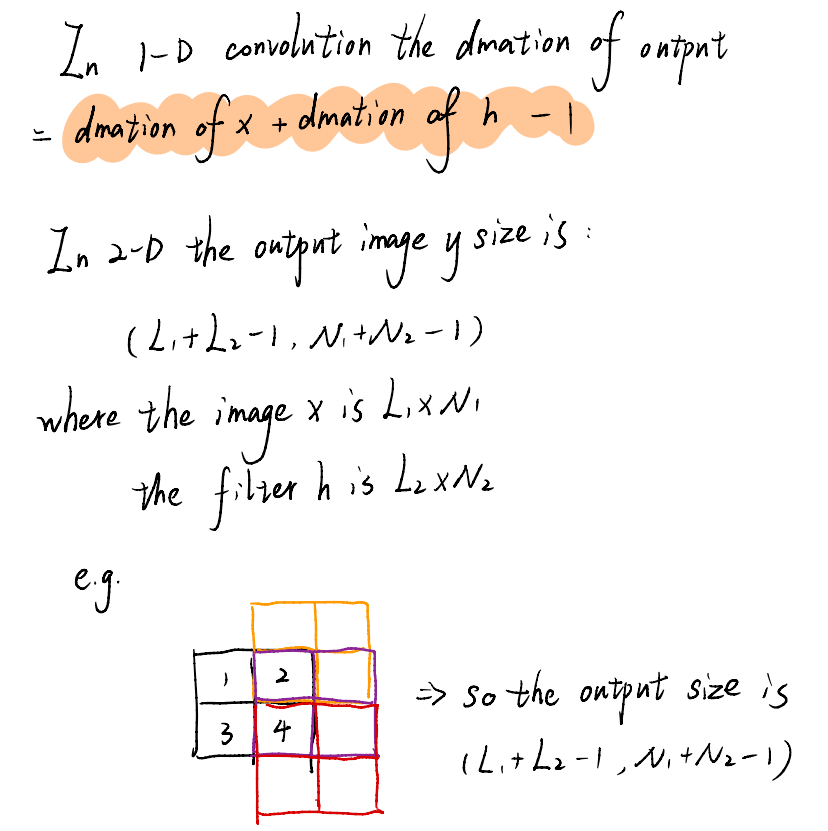 In 1-D convolution the dmation of output
= dmation of x + dmation of h - 1
In 2-D the output image y size is :
(L₁+L₂-1, N₁+N₂-1)
where the image x is L₁×N₁
the filter h is L₂×N₂
e.g.
1 2
3 4
⇒ so the output size is
(L₁+L₂-1, N₁+N₂-1)